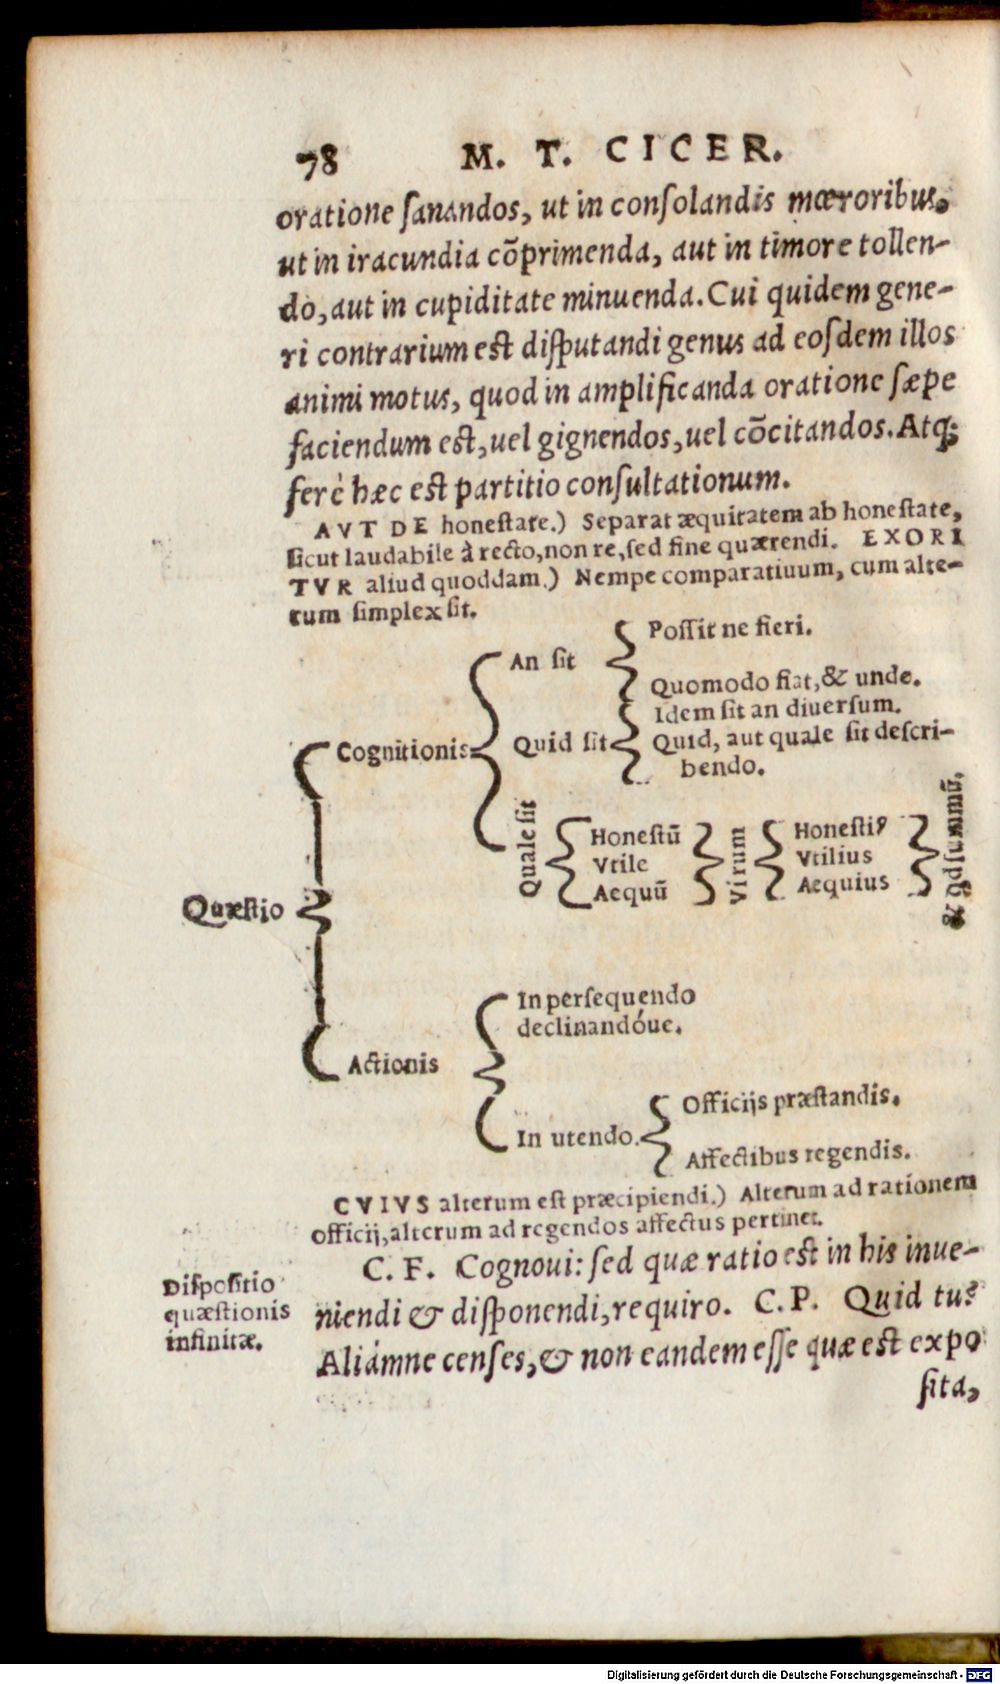 78 M. T. CICER.
oratione ſanandos, ut in conſolandis mæroribus,
ut in iracundia cõprimenda, aut in timore tollen-
do, aut in cupiditate minuenda. Cui quidem gene-
ri contrarium est diſputandi genus ad eoſdem illos
animi motus, quod in amplificanda oratione ſæpe
faciendum est, uel gignendos, uel cõcitandos. Atq;
ferè hæc est partitio conſultationum.
AVT DE honeſtate.) Separat æquitatem ab honeſtate,
ſicut laudabile à recto, non re, ſed fine quærendi. EXORI
TVR aliud quoddam.) Nempe comparatiuum, cum alte-
rum ſimplex ſit.
Quæſtio
Cognitionis
An ſit
Poſſit ne fieri.
Quomodo fiat, & unde.
Quid ſit
Idem ſit an diuerſum.
Quid, aut quale ſit deſcri-
bendo.
Quale ſit
Honeſtũ
Vtile
Aequũ
Virum
Honeſtiꝰ
Vtilius
Aequius
Actionis
In perſequendo
declinandóue.
In utendo.
Officijs præſtandis.
Affectibus regendis.
CVIVS alterum eſt præcipiendi.) Alterum ad rationem
officij, alterum ad regendos affectus pertinet.
C. F. Cognoui: ſed quæ ratio est in his inue-
Diſpoſitio
quæſtionis
infinitæ.
niendi & diſponendi, requiro. C. P. Quid tu?
Aliámne cenſes, & non eandem eſſe quæ est expo
ſita,
Digitalisierung gefördert durch die Deutsche Forschungsgemeinschaft - DFG